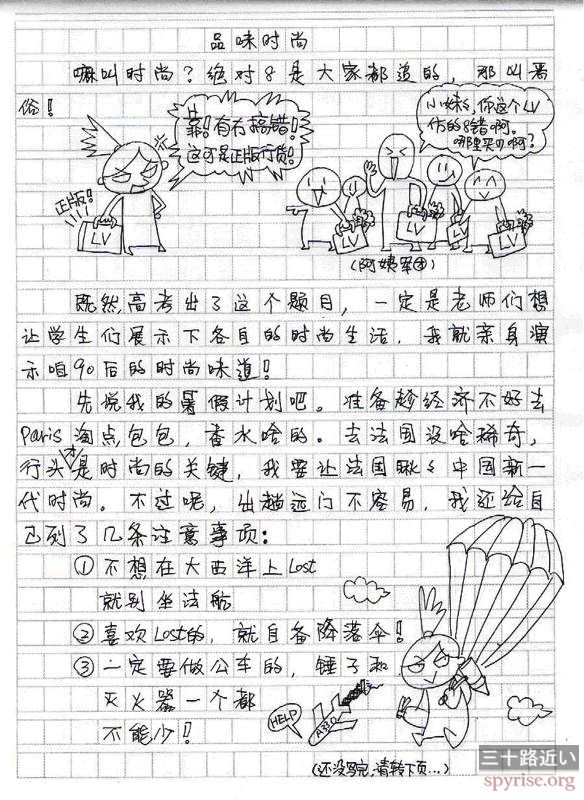 品味时尚
嘛叫时尚？绝对8是大家都追的，那叫暑
俗！
靠！有冇搞错！
这可是正版行货！
小妹ミ，你这个LV
仿的8错啊。
哪里买贝啊？
正版！
LV
LV
LV
LV
LV
（阿姨军团）
既然高考出了这个题目，一定是老师们想
让学生们展示下各自的时尚生活，我就亲身演
示咱90后的时尚味道！
先说我的暑假计划吧。准备趁经济不好去
Paris淘点包包，香水啥的。去法国没啥稀奇，
行头才是时尚的关键，我要让法国瞅ミ中国新一
代时尚。不过呢，出趟远门不容易，我还给自
己列了几条注意事项：
①不想在大西洋上Lost
就别坐法航
②喜欢Lost的，就自备降落伞！
③一定要做公车的，锤子和
灭火器一个都
不能少！
HELP
A330
（还没写完，请转下页...）
三十路近い
spyrise.org